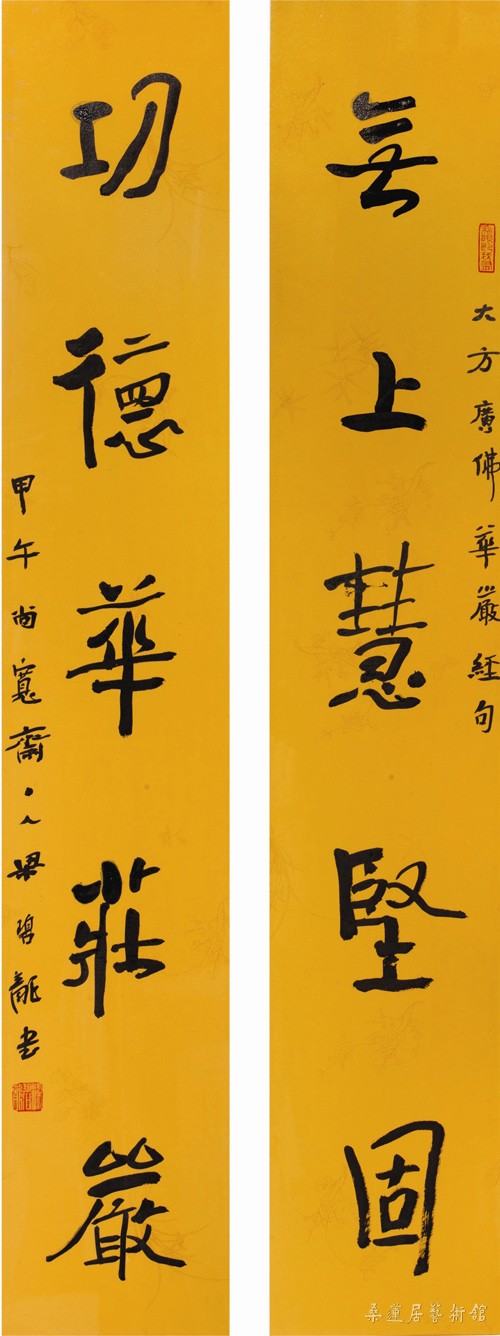 大方廣佛華嚴經句
無上慧堅固
功德華莊嚴
甲午尚寬齋丶人梁碧龍書
桑蓮居藝術館